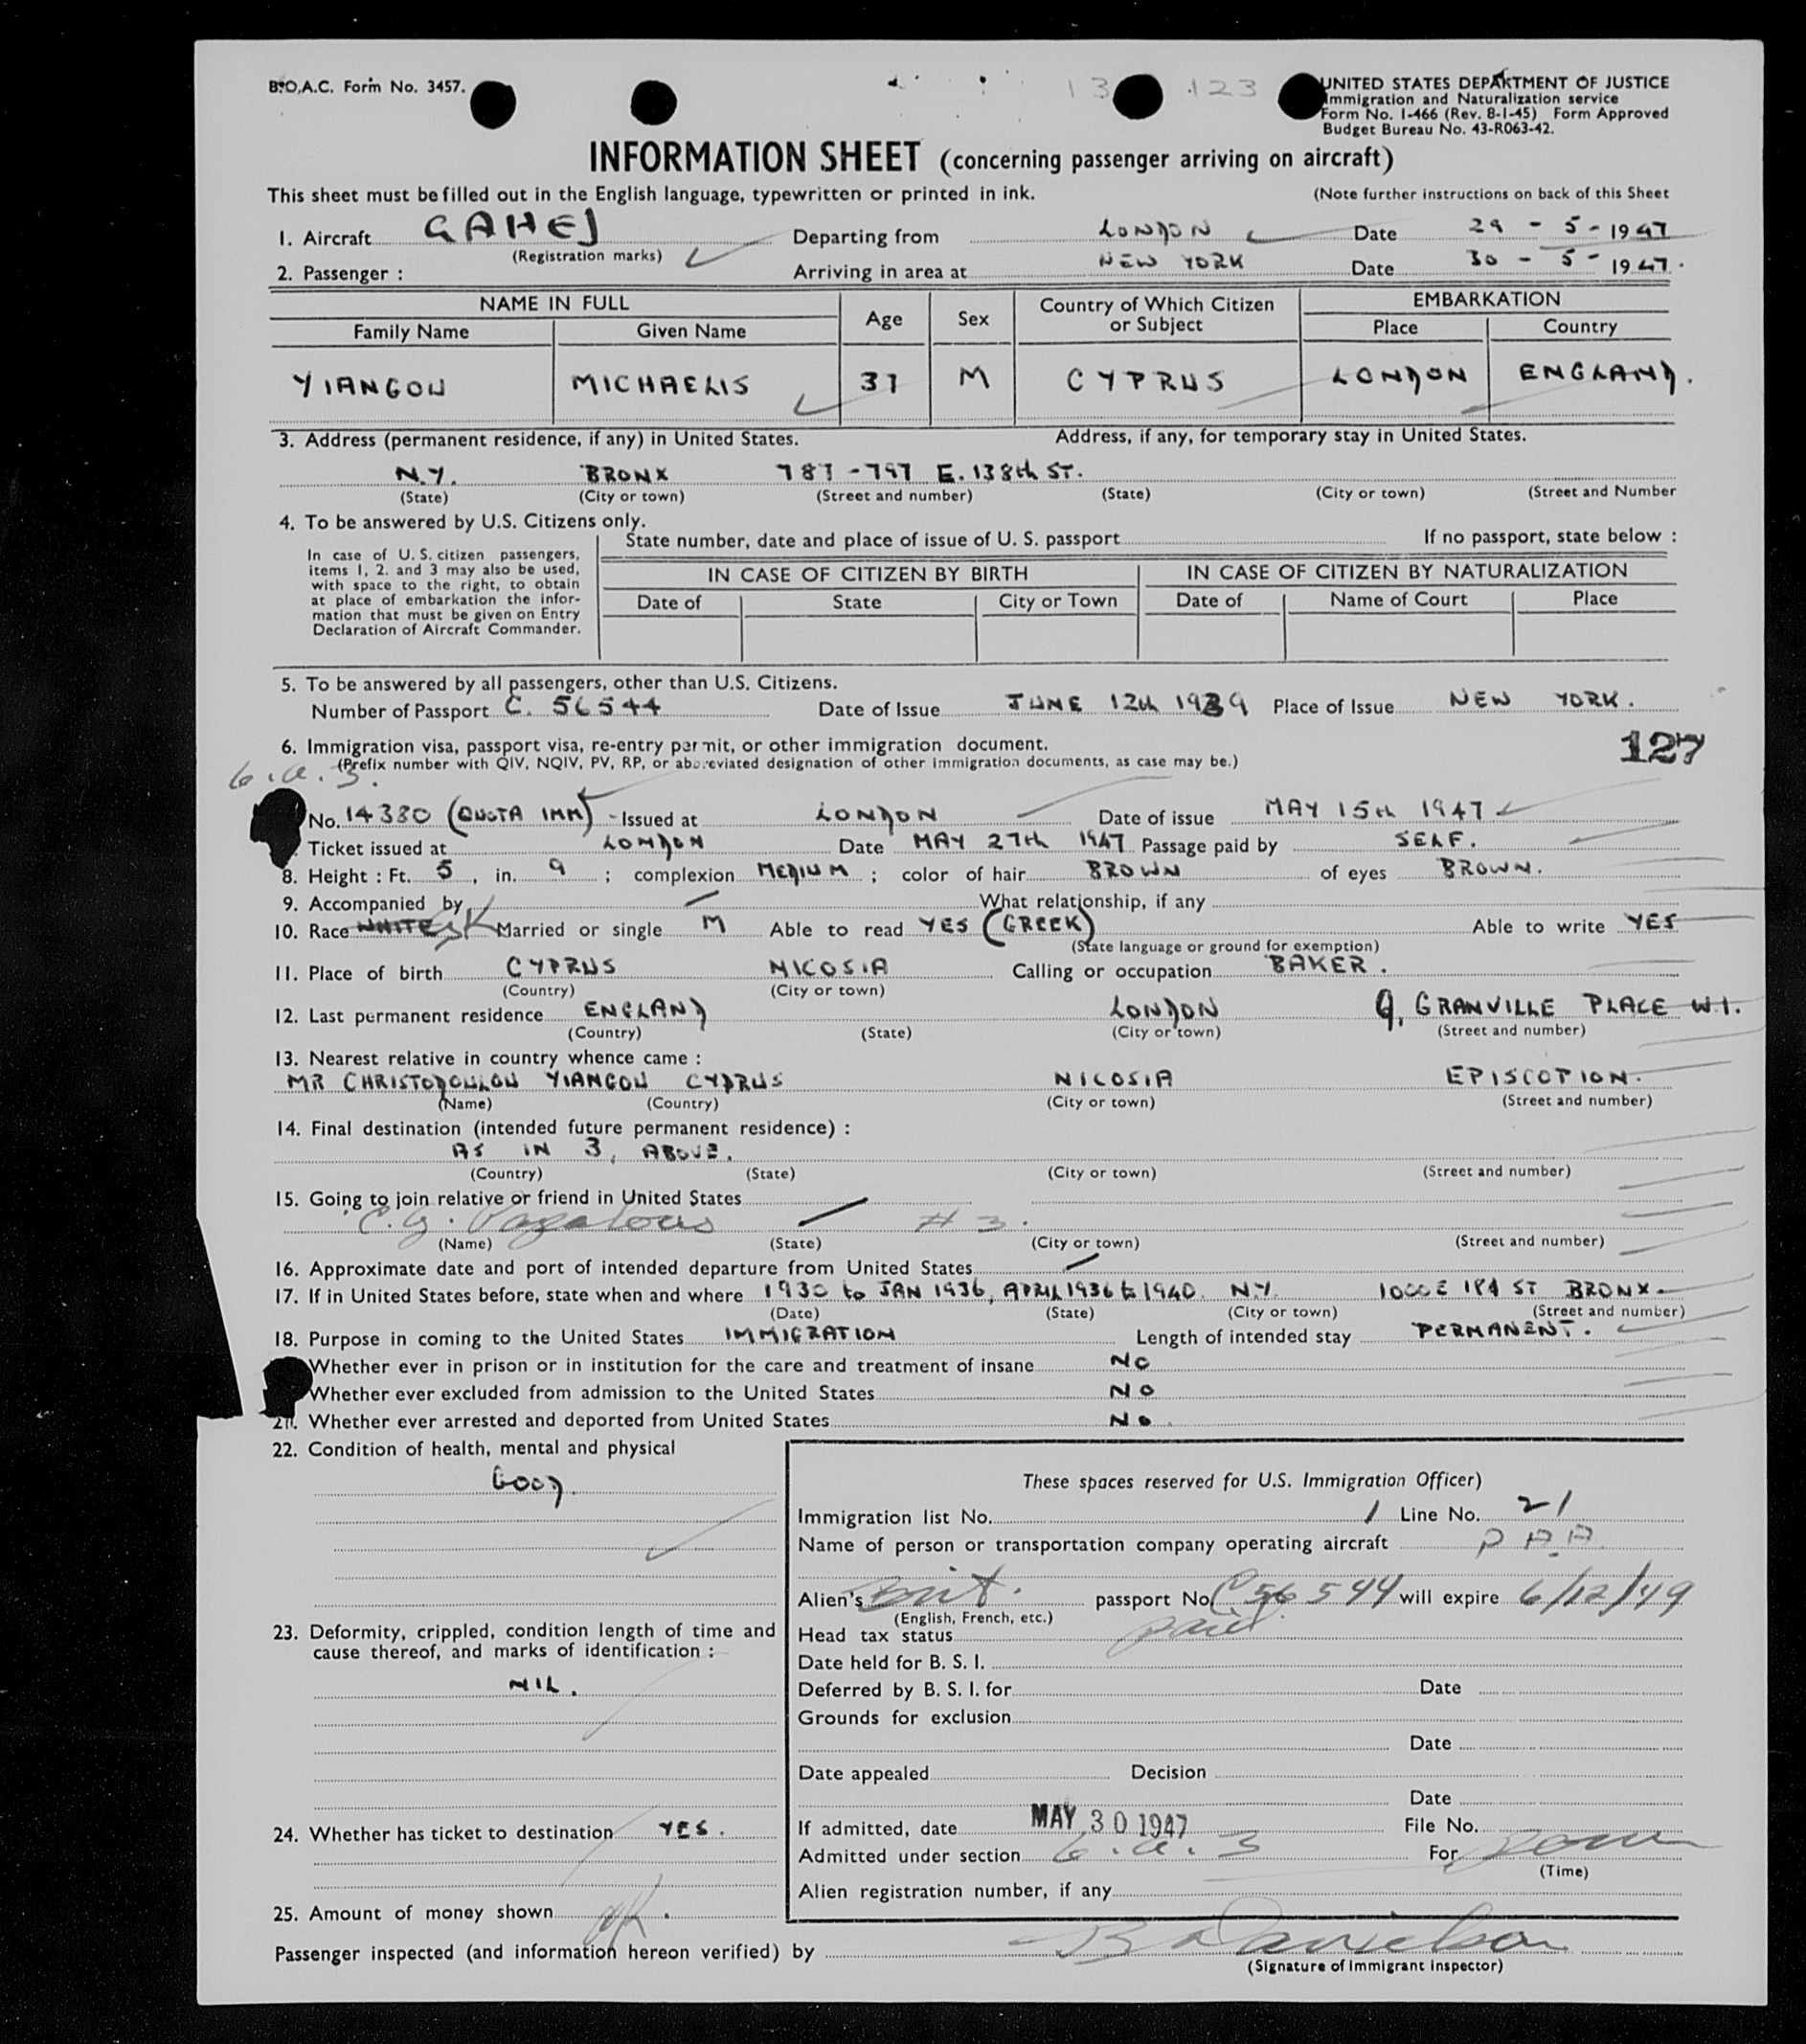 B.O.A.C. Form No. 3457.
123
UNITED STATES DEPARTMENT OF JUSTICE
Immigration and Naturalization service
Form No. I-466 (Rev. 8-1-45) Form Approved
Budget Bureau No. 43-R063-42.
INFORMATION SHEET (concerning passenger arriving on aircraft)
This sheet must be filled out in the English language, typewritten or printed in ink. (Note further instructions on back of this Sheet
1. Aircraft GAHEJ Departing from LONDON Date 29 - 5 - 1947
(Registration marks)
2. Passenger : Arriving in area at NEW YORK Date 30 - 5 - 1947.
NAME IN FULL Age Sex Country of Which Citizen or Subject EMBARKATION
Family Name Given Name Place Country
YIANGOU MICHAELIS 37 M CYPRUS LONDON ENGLAND.
3. Address (permanent residence, if any) in United States. Address, if any, for temporary stay in United States.
N.Y. BRONX 787 - 797 E. 138th ST.
(State) (City or town) (Street and number) (State) (City or town) (Street and Number
4. To be answered by U.S. Citizens only.
State number, date and place of issue of U. S. passport If no passport, state below :
In case of U. S. citizen passengers,
items 1, 2. and 3 may also be used,
with space to the right, to obtain
at place of embarkation the infor-
mation that must be given on Entry
Declaration of Aircraft Commander.
IN CASE OF CITIZEN BY BIRTH IN CASE OF CITIZEN BY NATURALIZATION
Date of State City or Town Date of Name of Court Place
5. To be answered by all passengers, other than U.S. Citizens.
Number of Passport C. 56544 Date of Issue JUNE 12th 1939 Place of Issue NEW YORK.
6. Immigration visa, passport visa, re-entry permit, or other immigration document.
127
(Prefix number with QIV, NQIV, PV, RP, or abbreviated designation of other immigration documents, as case may be.)
6. a. 3.
No. 14380 (QUOTA IMM) - Issued at LONDON Date of issue MAY 15th 1947
Ticket issued at LONDON Date MAY 27th 1947 Passage paid by SELF.
8. Height : Ft. 5, in. 9 ; complexion MEDIUM ; color of hair BROWN of eyes BROWN.
9. Accompanied by What relationship, if any
10. Race WHITE GK Married or single M Able to read YES (GREEK) Able to write YES
(State language or ground for exemption)
11. Place of birth CYPRUS NICOSIA Calling or occupation BAKER.
(Country) (City or town)
12. Last permanent residence ENGLAND LONDON 9, GRANVILLE PLACE W.1.
(Country) (State) (City or town) (Street and number)
13. Nearest relative in country whence came :
MR CHRISTODOULOU YIANGOU CYPRUS NICOSIA EPISCOTION.
(Name) (Country) (City or town) (Street and number)
14. Final destination (intended future permanent residence) :
AS IN 3, ABOVE.
(Country) (State) (City or town) (Street and number)
15. Going to join relative or friend in United States
C. G. # 3.
(Name) (State) (City or town) (Street and number)
16. Approximate date and port of intended departure from United States
17. If in United States before, state when and where 1930 to JAN 1936, APRIL 1936 to 1940. N.Y. 1000 E 181 ST BRONX.
(Date) (State) (City or town) (Street and number)
18. Purpose in coming to the United States IMMIGRATION Length of intended stay PERMANENT.
Whether ever in prison or in institution for the care and treatment of insane NO
Whether ever excluded from admission to the United States NO
21. Whether ever arrested and deported from United States NO.
22. Condition of health, mental and physical
GOOD.
23. Deformity, crippled, condition length of time and
cause thereof, and marks of identification :
NIL.
24. Whether has ticket to destination YES.
25. Amount of money shown
These spaces reserved for U.S. Immigration Officer)
Immigration list No. 1 Line No. 21
Name of person or transportation company operating aircraft P.A.A.
Alien's Brit. passport No. C 56544 will expire 6/12/49
(English, French, etc.)
Head tax status paid
Date held for B. S. I.
Deferred by B. S. I. for Date
Grounds for exclusion
Date
Date appealed Decision
Date
If admitted, date MAY 30 1947 File No.
Admitted under section 6. a. 3 For
(Time)
Alien registration number, if any
Passenger inspected (and information hereon verified) by
(Signature of Immigrant Inspector)